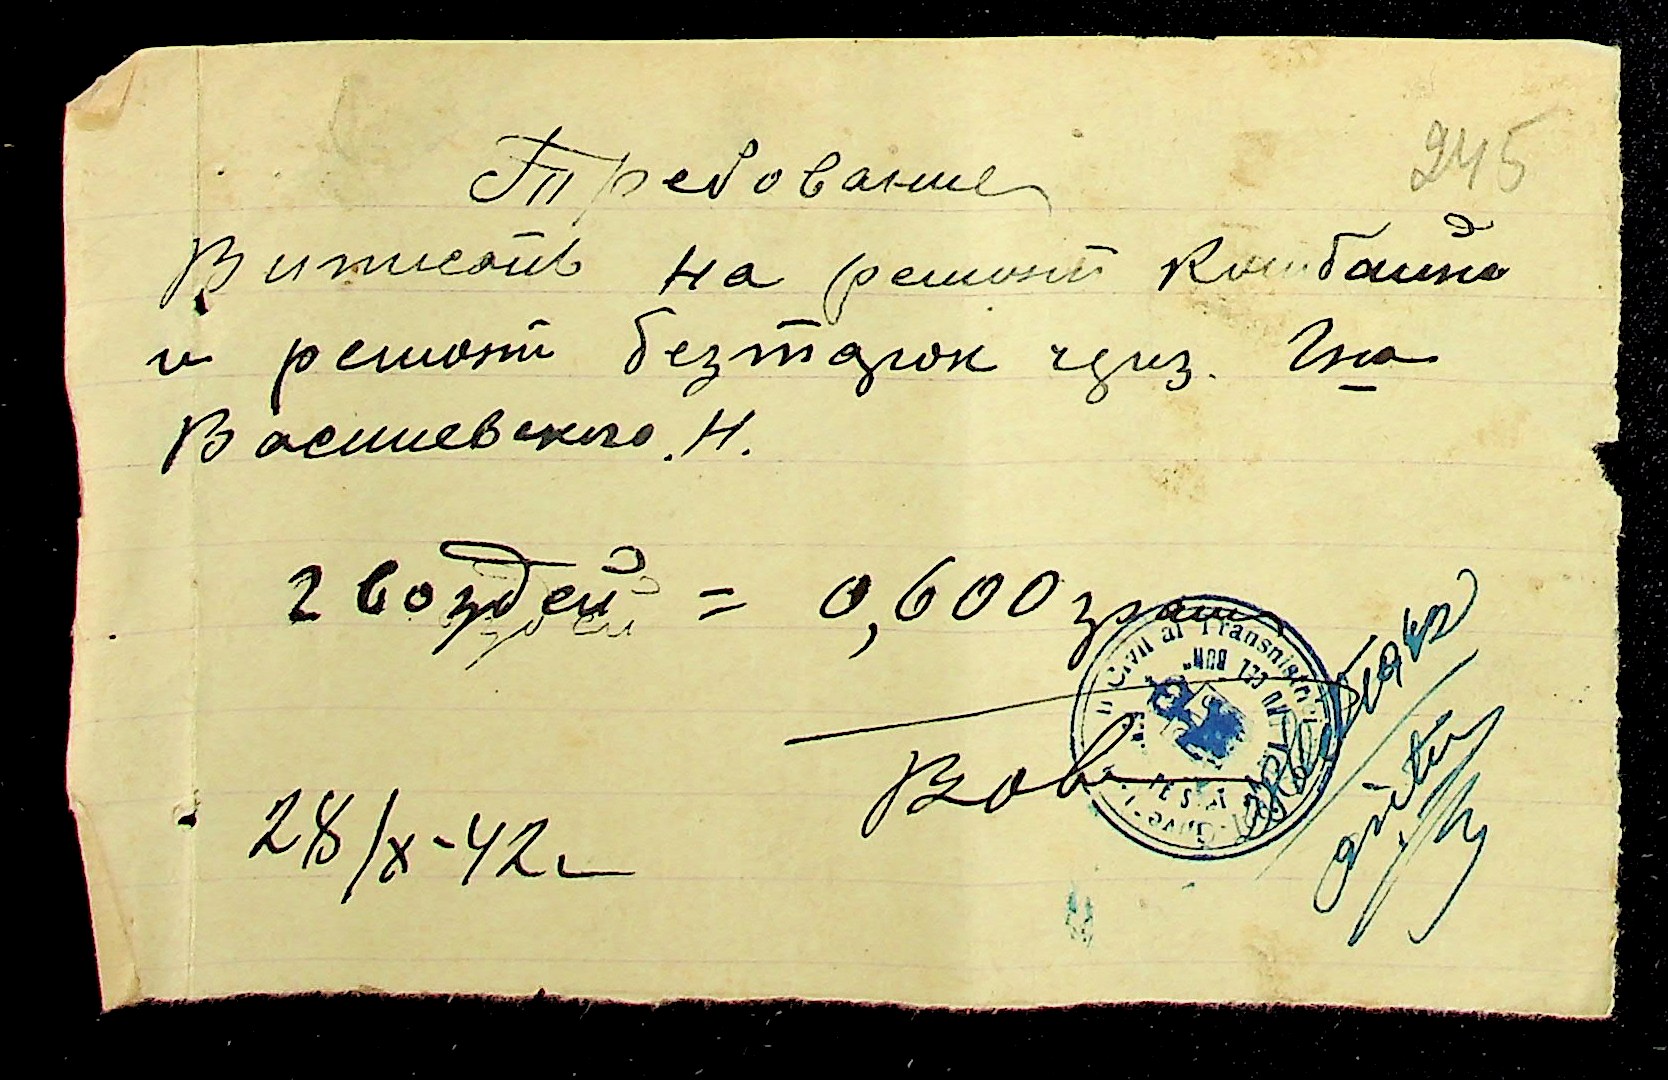 245
Требование
Виписать на ремонт Комбайна
и ремонт безтарок через. Гна
Василевского. Н.
гвоздей = 0,600 грам
Civil al Transnistriei
28/X-42г